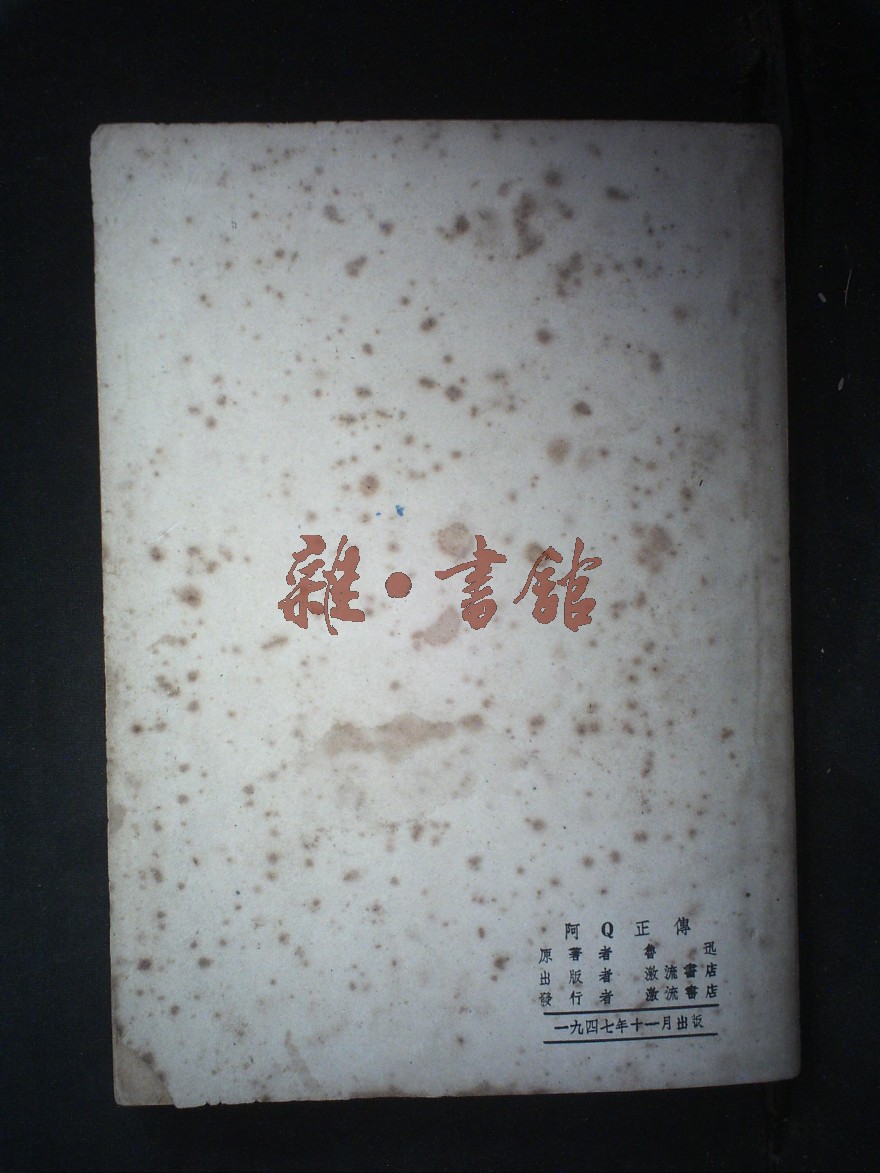 雜·書館
阿Q正傳
原著者 魯迅
出版者 激流書店
發行者 激流書店
一九四七年十一月出版